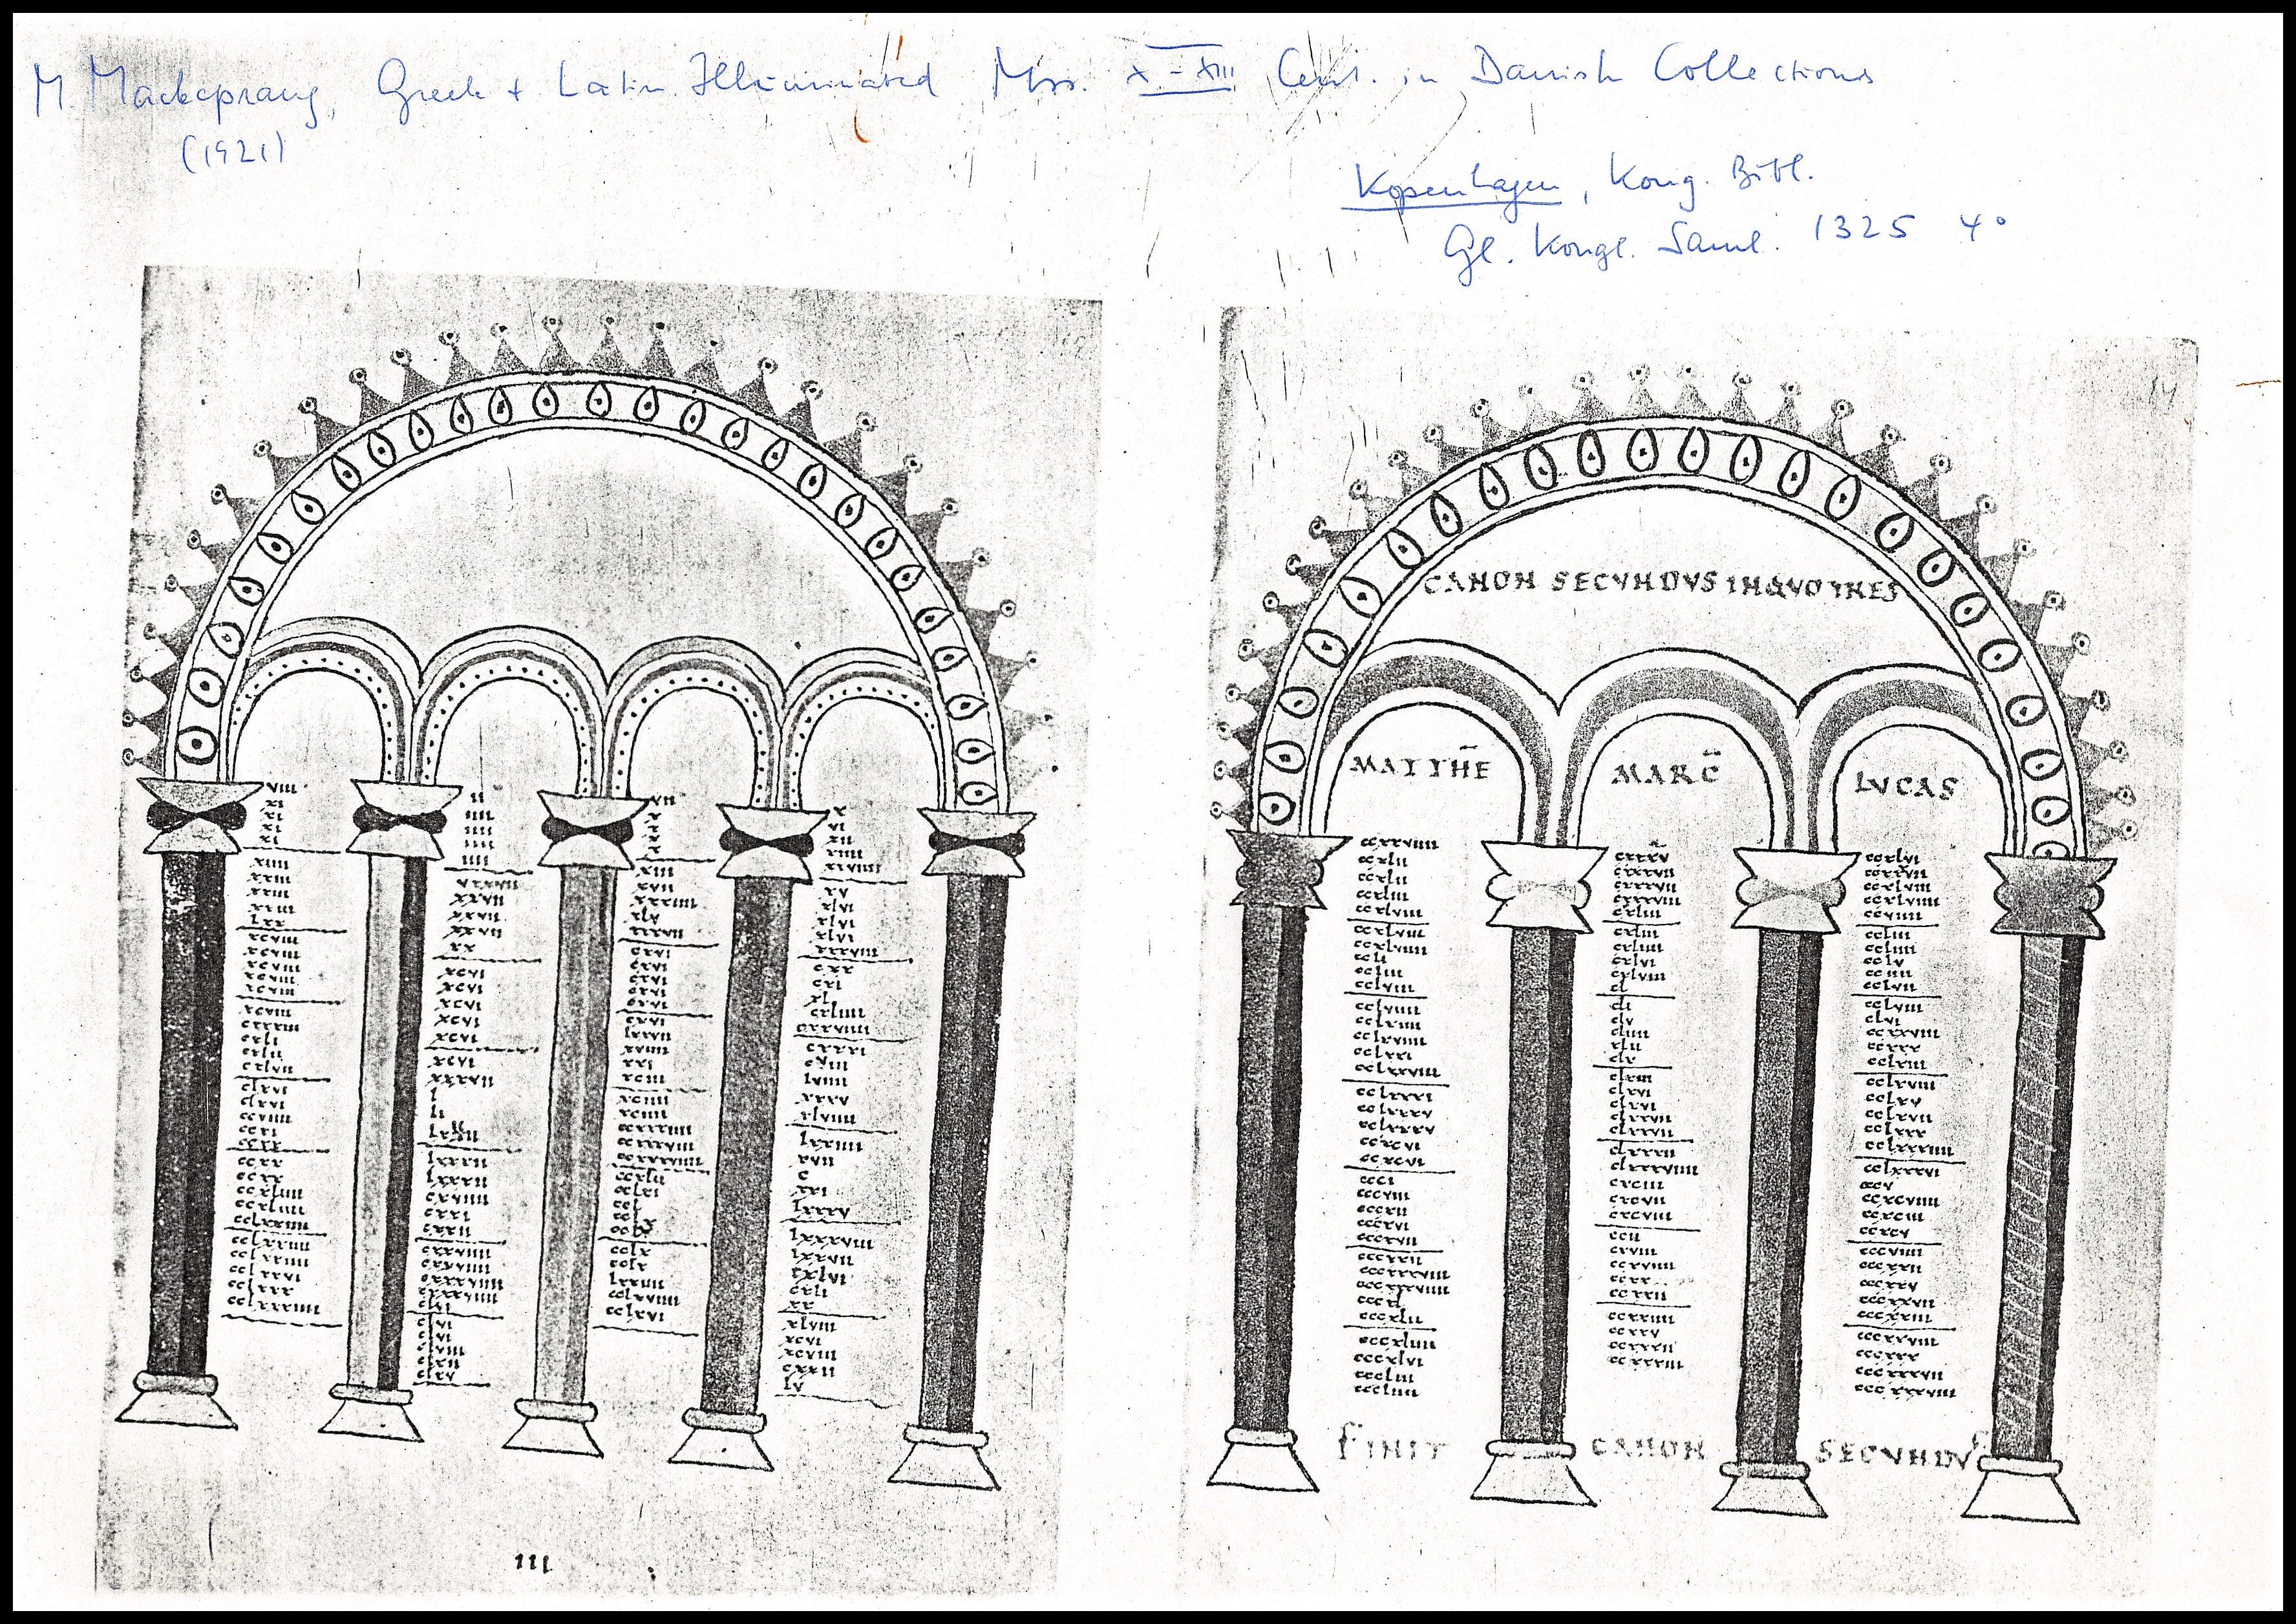 M. Mackeprang, Greek + Latin Illuminated Mss. X-XIII Cent. in Danish Collections
(1921)
Kopenhagen, Kong. Bibl.
Gl. Kongl. Saml. 1325 4°
viii
xi
xi
xi
xi
xiiii
xxiii
xxiii
xxiii
lxx
xcviii
xcviii
xcviii
xcviii
xcviii
cxxxiii
cxli
cxlii
cxlvii
clxvi
clxvi
ccviiii
ccxi
ccxx
ccxx
ccxx
ccxliiii
ccxliiii
cclxxiiii
cclxxiiii
cclxxiiii
cclxxvi
cclxxx
ii
iiii
iiii
iiii
iiii
xxvii
xxvii
xxvii
xx
xcvi
xcvi
xcvi
xcvi
xcvi
xcvi
xxxvii
l
li
lxxxii
lxxxii
cxviiii
cxxi
cxxii
cxxviiii
cxxviiii
cxxxviiii
cxxxviiii
clvi
clvi
clvi
clviii
clxii
clxv
vii
x
x
x
x
xiii
xvii
xxxiiii
xlv
xxxvii
cxvi
cxvi
cxvi
cxvi
cxvi
lxxvii
xviiii
xxi
xciii
xciiii
xciiii
ccl
cclx
cclx
lxxiiii
cclxviiii
cclxvi
x
vi
xii
xiiii
xv
xlvi
xlvi
xlvi
xxxviii
cxx
cxi
xl
cxliiii
cxxxi
cviii
lviiii
xxxv
xlviiii
lxxiiii
xvii
c
xxi
lxxxv
lxxxviii
lxxvii
cxlvi
cxli
xx
xlviii
xcvi
xcviii
cxxii
lv
III
14
CANON SECVNDVS IN QVO TRES
MATTHE̅
MARC̅
LVCAS
ccxxviiii
ccxlii
ccxlii
ccxliii
ccxlviii
ccxlviii
ccxlviiii
ccli
ccliii
cclviii
cclviiii
cclxiiii
cclxviiii
cclxxi
cclxxviii
cclxxxi
cclxxxv
cclxxxv
ccxcvi
ccxcvi
ccci
cccviii
cccxii
cccxvi
cccxvii
cccxxii
cccxxxviii
cccxxxviiii
cccxl
cccxlii
cccxliiii
cccxlvi
cccliii
cccliiii
cxxxv
cxxxvii
cxxxvii
cxxxviii
cxliii
cxliii
cxliiii
cxlvi
cxlviii
cl
cli
clv
cliiii
xlii
clx
clxiii
clxvi
clxvi
clxxvii
clxxvii
clxxxii
clxxxviiii
cxciii
cxcvii
cxcviii
ccii
cxviii
ccxviiii
ccxx
ccxxii
ccxxiiii
ccxxv
ccxxxii
ccxxxiii
ccxlvi
ccxxvii
ccxlviii
ccxlviiii
ccviiii
ccliii
ccliiii
cclv
cciiii
cclvii
cclviii
clvi
ccxxviii
ccxxx
cclxiii
cclxviii
cclxv
cclxvii
cclxxx
cclxxxiiii
cclxxxvi
cccv
ccxcviiii
ccxciii
ccxcv
cccviiii
cccxxii
cccxxv
cccxxvii
cccxxiii
cccxxviii
cccxxx
cccxxxvii
cccxxxviii
FINIT CANON SECVNDVS